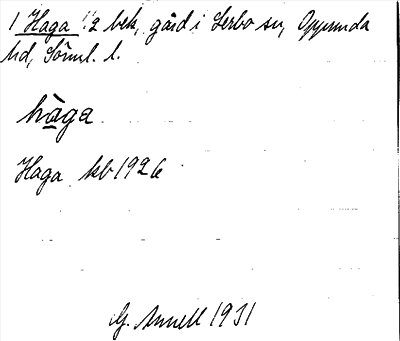 1 Haga 1/2 bek, gård i Lerbo sn, Oppunda
hd, Söml. l.
hàga
Haga kb 1926
G. Annell 1931